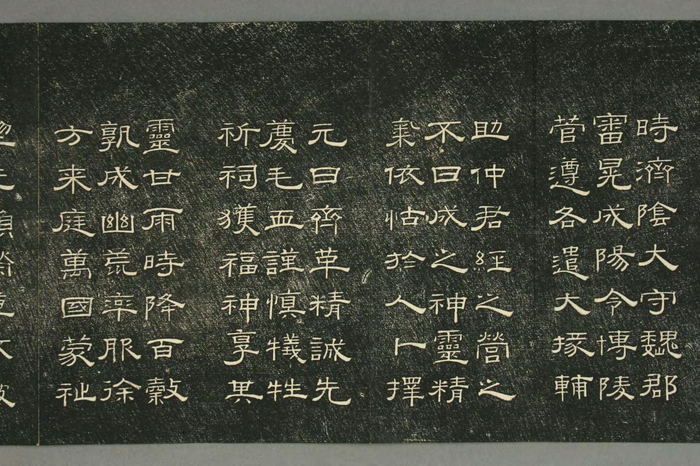 時濟陰大守魏郡
審晃成陽令博陵
管遵各遣大掾輔
助仲君經之營之
不日成之神靈精
氣依怙於人卜擇
元日齊革精誠先
薦毛血謹慎犧牲
祈祠獲福神享其
靈甘雨時降百穀
孰成幽荒率服徐
方来庭萬國蒙祉